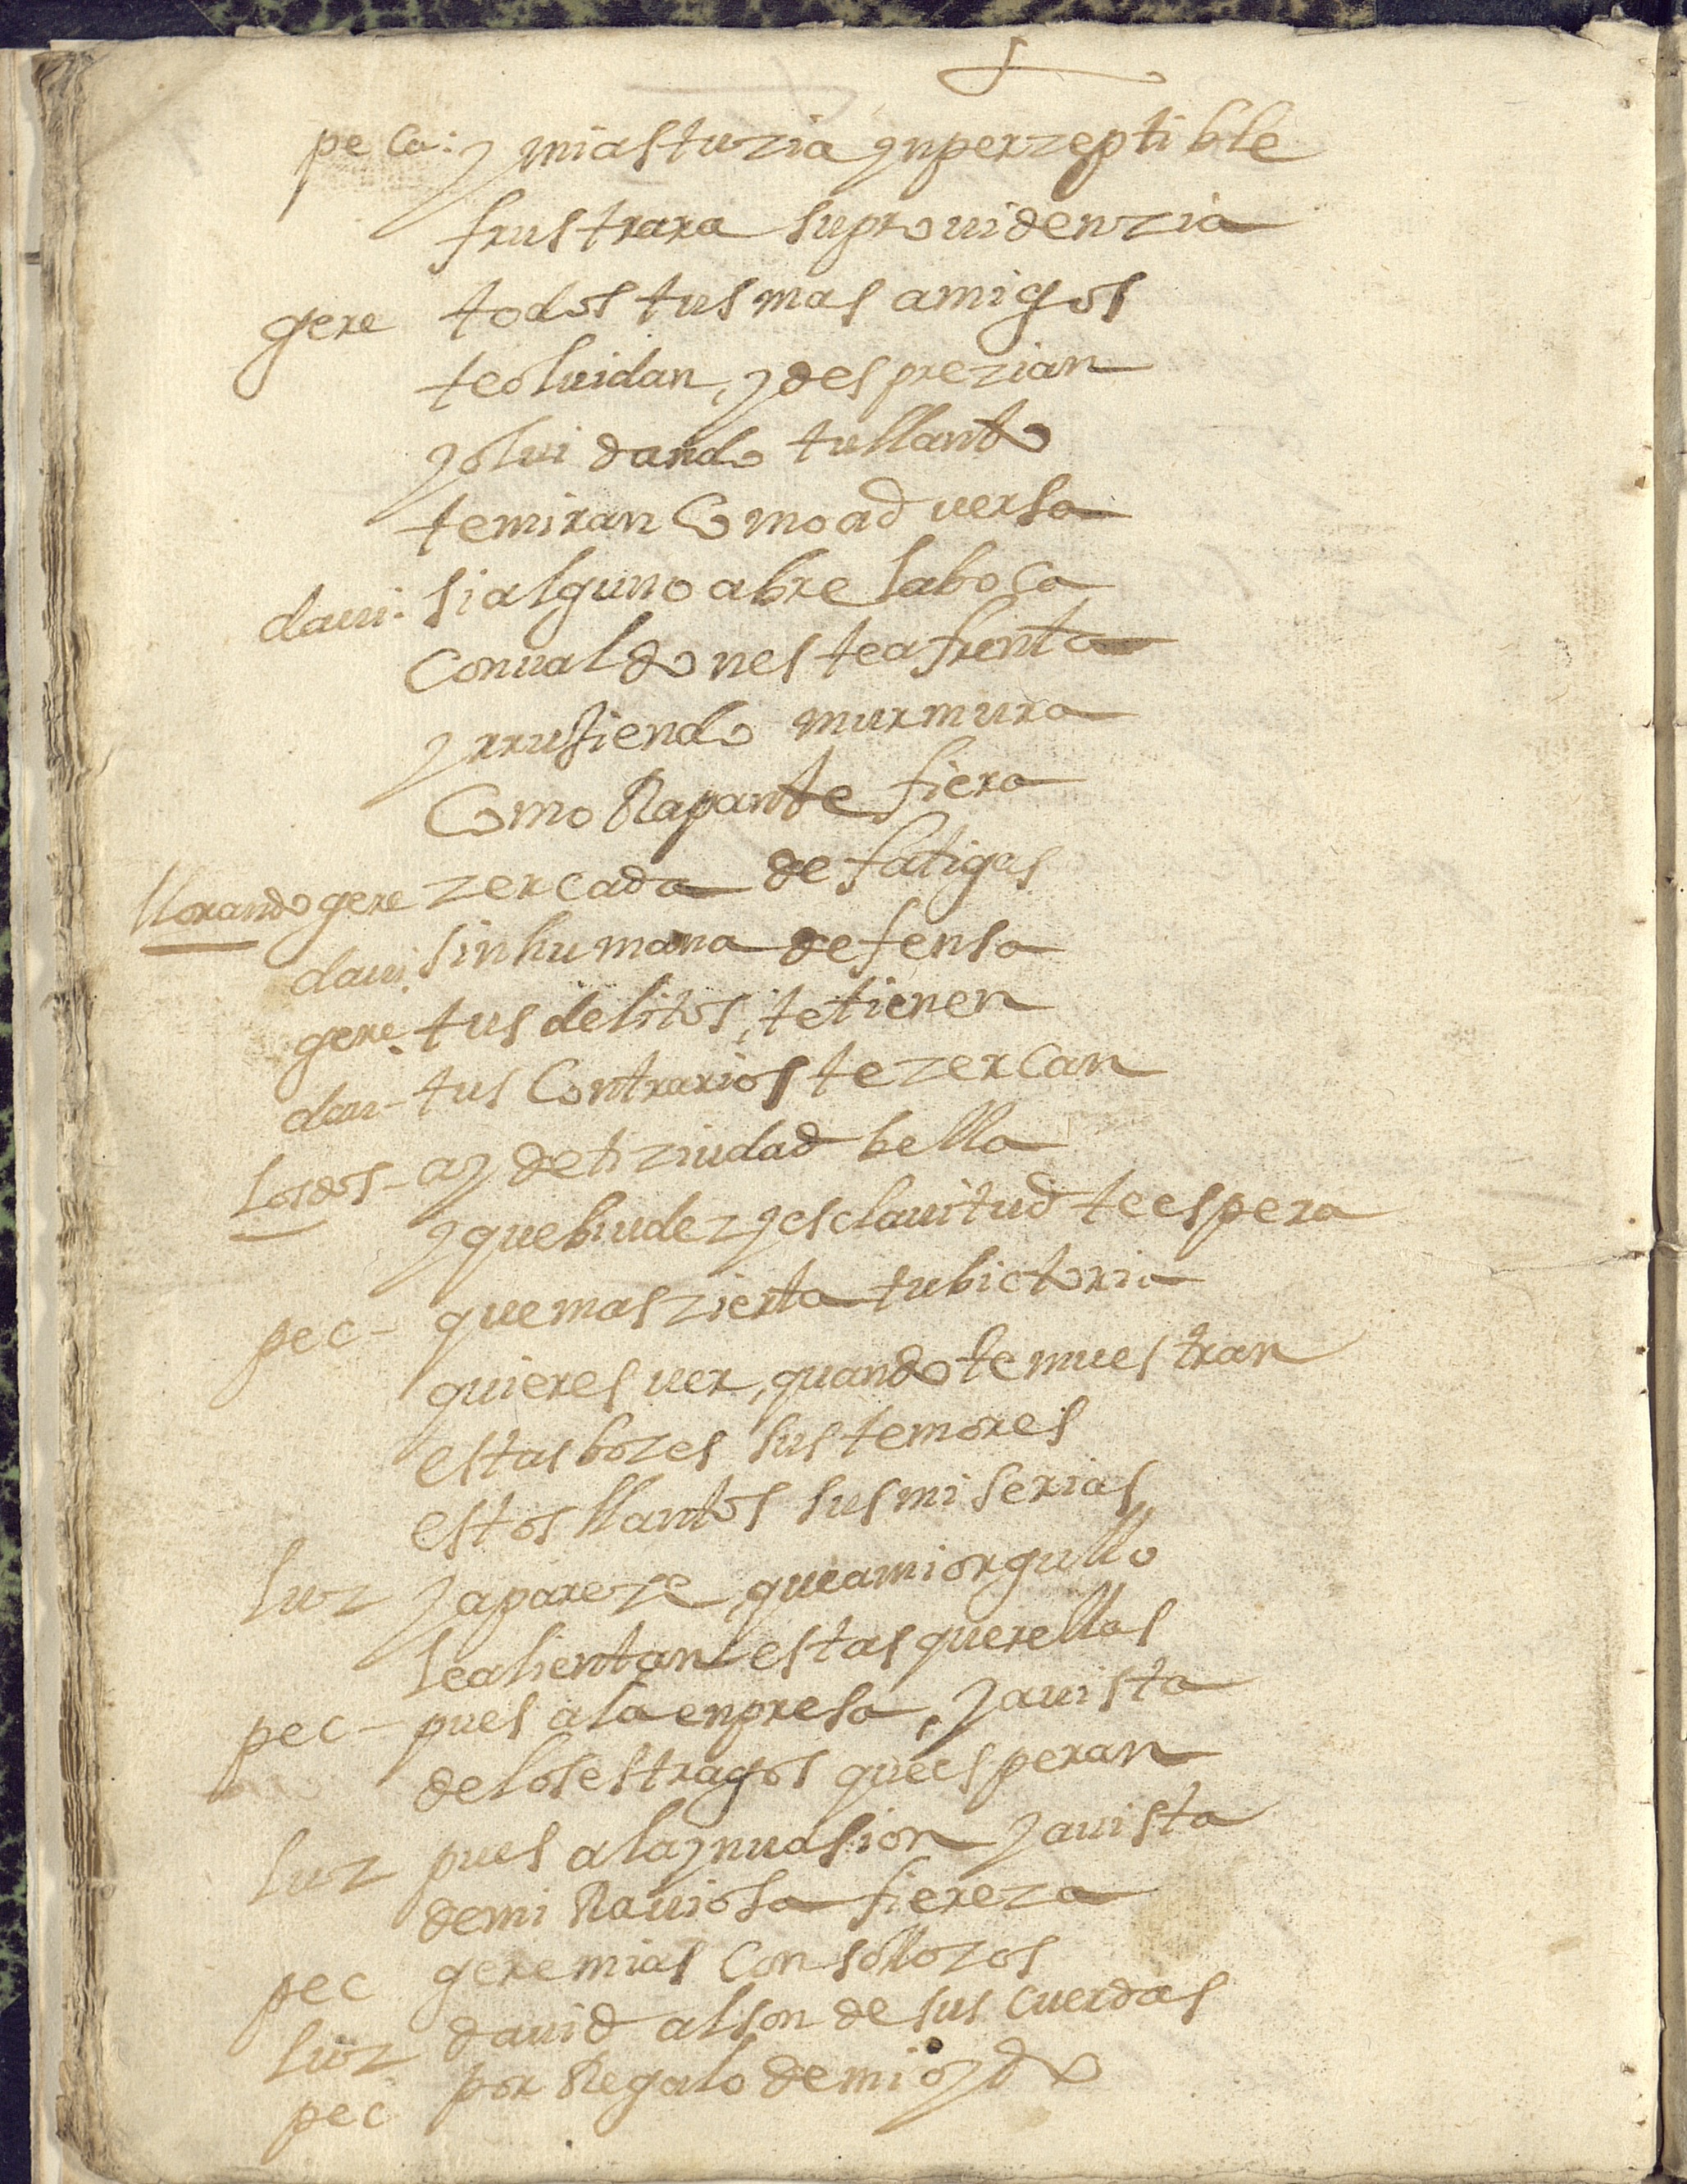 peca: y mi astuzia ynperzeptible
frustrara su prouidenzia
gere todos tus mas amigos
te oluidan, y desprezian
y oluidando tu llanto
te miran como aduersa
daui. si alguno abre la boca
con ualdones te afrenta
y rrujiendo murmura
como Rapante fiera
llorando gere zercada de fatigas
daui. sin humana defensa
gere. tus delitos, te tienen
daui- tus contrarios te zercan
los dos- ay de ti ziudad bella
y que biudez y esclauitud te espera
pec- que mas zierta tu bictoria
quieres uer, quando te muestran
estas bozes sus temores
estos llantos sus miserias
luz y apareze, que a mi orgullo
le alientan estas querellas
pec- pues a la enpresa, y a uista
de los estragos que esperan
luz pues a la ynuasion y a uista
de mi Rauiosa fiereza
pec geremias con sollozos
luz dauid al son de sus cuerdas
pec por Regalo de mi oydo